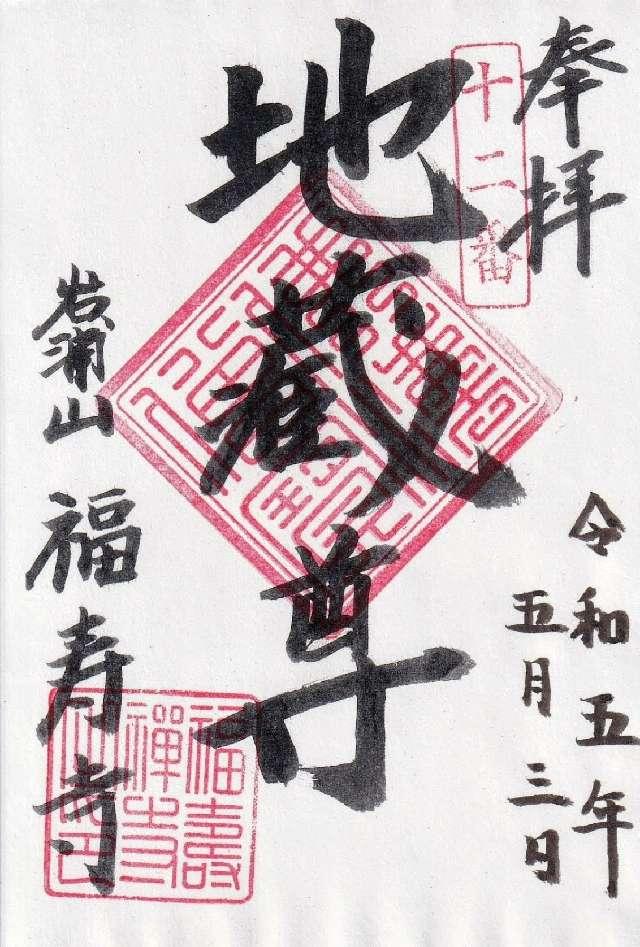 奉拝
十二番
令和五年
五月三日
地蔵尊
岩湧山
福寿寺
福壽
禅寺